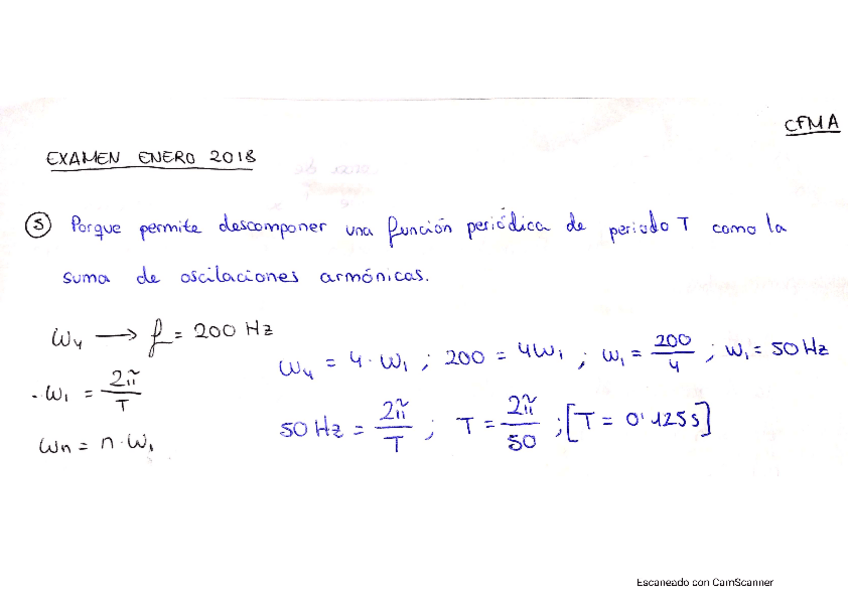 CFMA
EXAMEN ENERO 2018
5 Porque permite descomponer una función periódica de periodo T como la
suma de oscilaciones armónicas.
ω₄ → f = 200 Hz
· ω₁ = 2π/T
ωn = n · ω₁
ω₄ = 4 · ω₁ ; 200 = 4ω₁ ; ω₁ = 200/4 ; ω₁ = 50 Hz
50 Hz = 2π/T ; T = 2π/50 ; [T = 0'125 s]
Escaneado con CamScanner